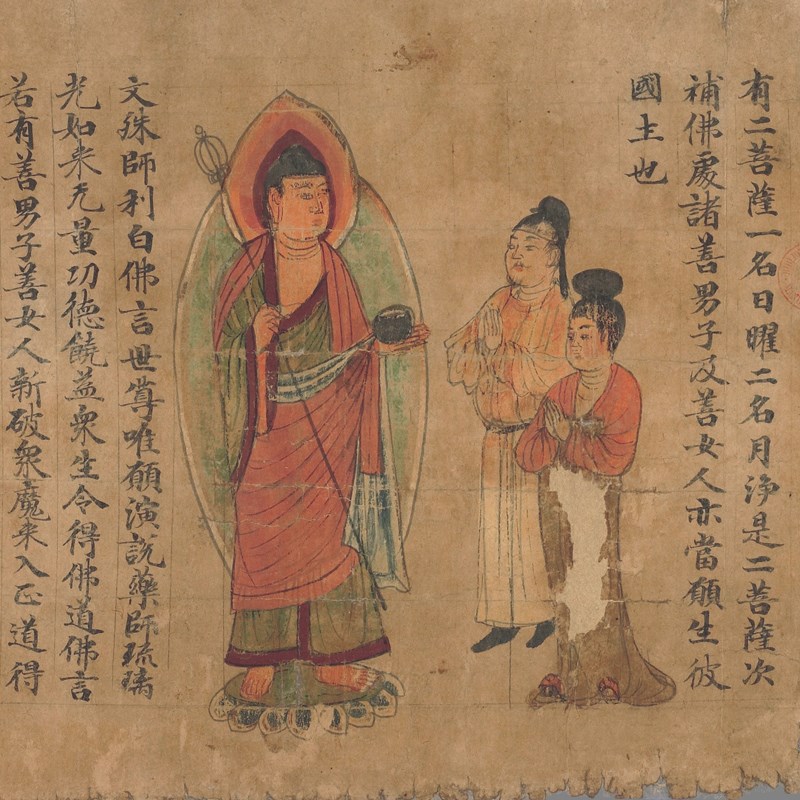 有二菩薩一名日曜二名月淨是二菩薩次
補佛處諸善男子及善女人亦當願生彼
國土也
文殊師利白佛言世尊唯願演說藥師琉璃
光如来无量功德饒益衆生令得佛道佛言
若有善男子善女人新破衆魔来入正道得